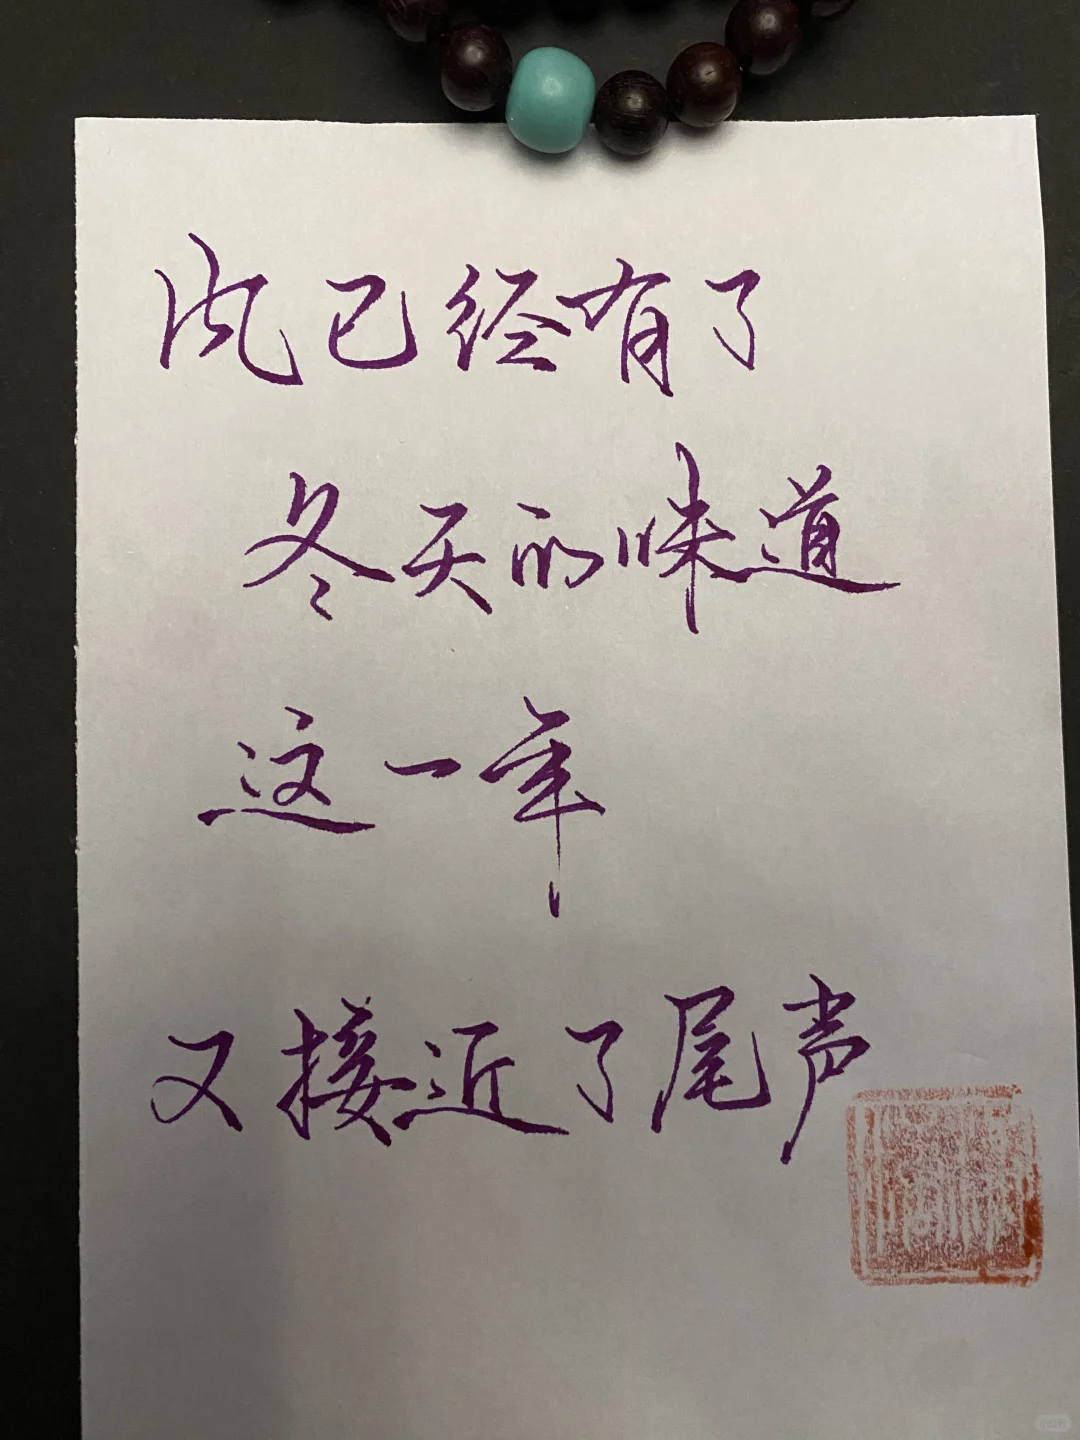 风已经有了
冬天的味道
这一年
又接近了尾声